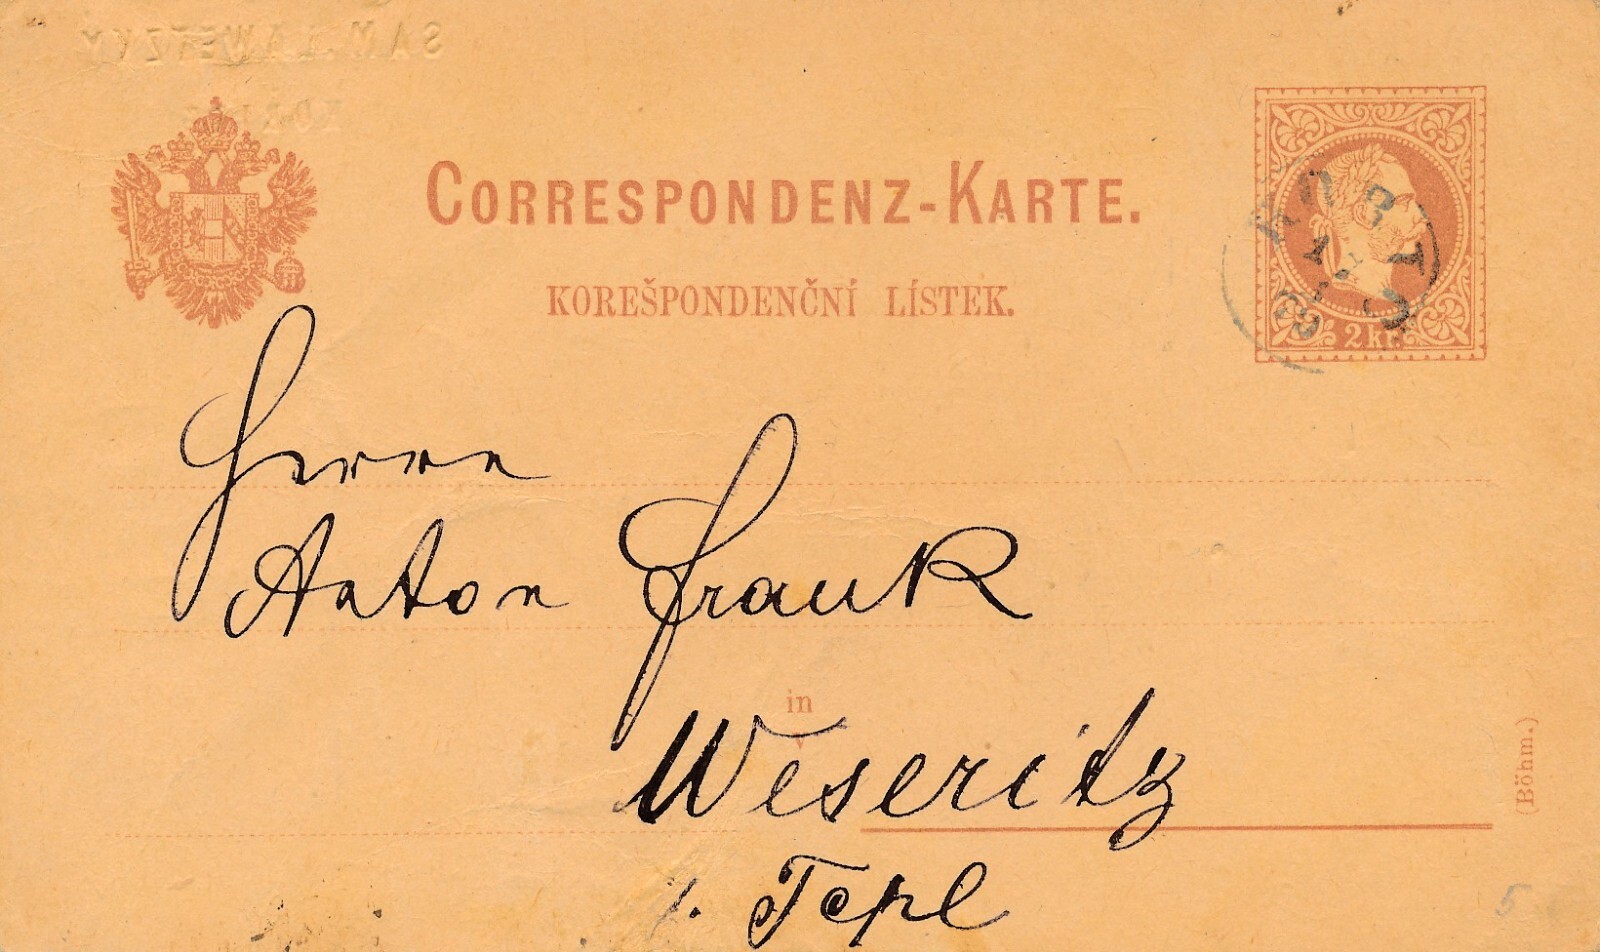 CORRESPONDENZ-KARTE.
KOREŠPONDENČNÍ LÍSTEK.
2 kr.
Herrn
Anton Frank
in
v
Weseritz
Tepl
(Böhm.)
5